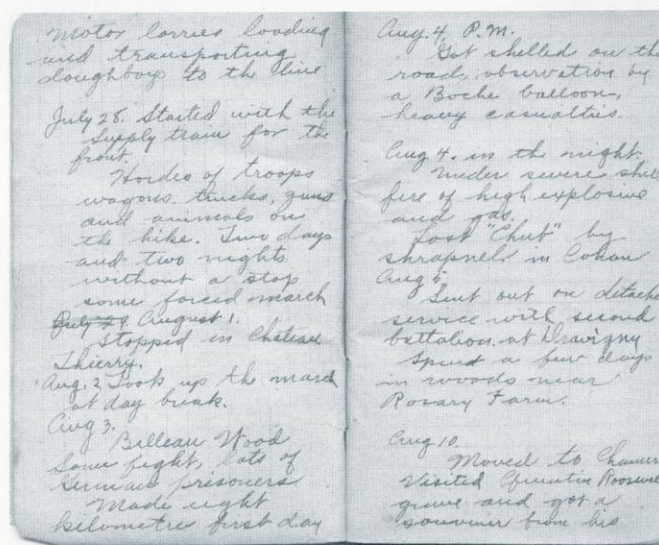 Motor lorries loading
and transporting
doughboys to the line
July 28. Started with the
supply train for the
front.
Hordes of troops
wagons. trucks, guns
and animals on
the hike. Two days
and two nights
without a stop
some forced march
July 29 August 1.
Stopped in Chateau
Thierry.
Aug. 2 Took up the march
at day break.
Aug 3.
Belleau Wood
Some fight, lots of
German prisoners
Made eight
kilometres first day
Aug. 4. P.M.
Got shelled on the
road, observation by
a Boche balloon,
heavy casualties.
Aug 4. in the night.
Under severe shell
fire of high explosive
and gas.
Lost "Chut" by
shrapnel in Cohan
Aug 5
Sent out on detache
service with second
battalion. at Dravigny
Spent a few days
in woods near
Rosary Farm.
Aug 10.
Moved to
Visited Quentin Roosevel
grave and got a
souvenir from his